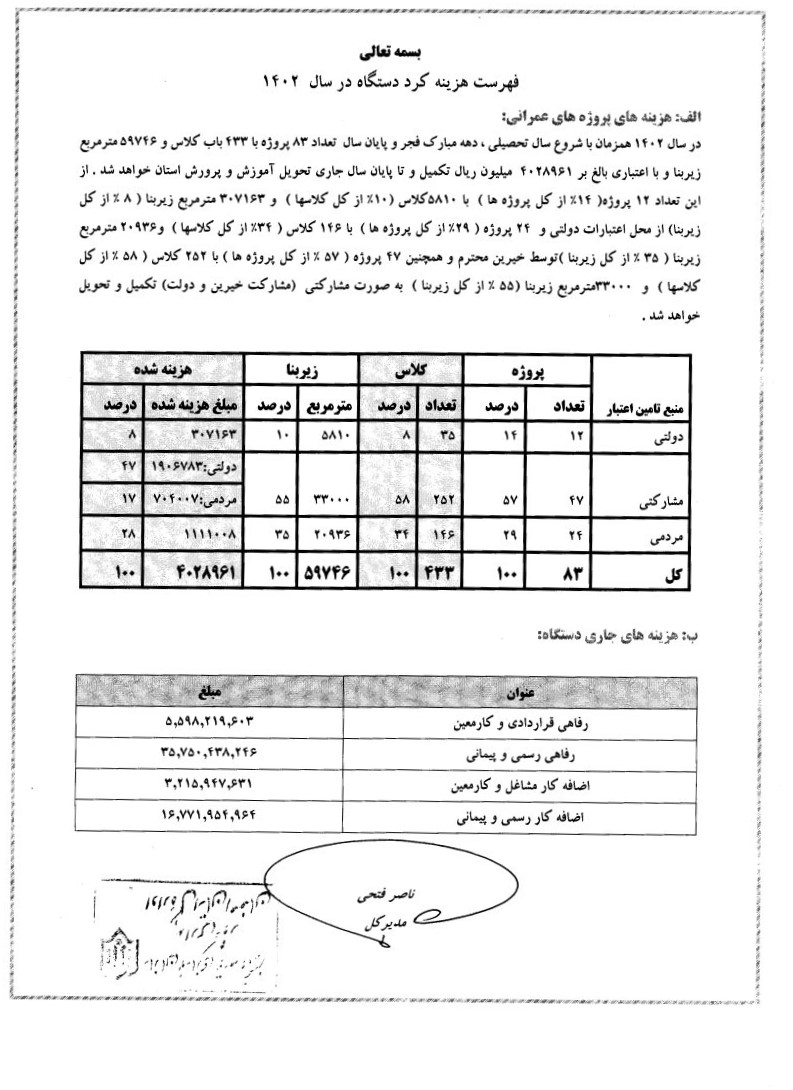 بسمه تعالی
فهرست هزینه کرد دستگاه در سال ۱۴۰۲
الف: هزینه های پروژه های عمرانی:
در سال ۱۴۰۲ همزمان با شروع سال تحصیلی ، دهه مبارک فجر و پایان سال تعداد ۸۳ پروژه با ۴۳۳ باب کلاس و ۵۹۷۴۶ مترمربع
زیربنا و با اعتباری بالغ بر ۴۰۲۸۹۶۱ میلیون ریال تکمیل و تا پایان سال جاری تحویل آموزش و پرورش استان خواهد شد . از
این تعداد ۱۲ پروژه( ۱۴٪ از کل پروژه ها ) با ۵۸۱۰کلاس (۱۰٪ از کل کلاسها ) و ۳۰۷۱۶۳ مترمربع زیربنا ( ۸ ٪ از کل
زیربنا) از محل اعتبارات دولتی و ۲۴ پروژه ( ۲۹٪ از کل پروژه ها ) با ۱۴۶ کلاس ( ۳۴٪ از کل کلاسها ) و۲۰۹۳۶ مترمربع
زیربنا ( ۳۵ ٪ از کل زیربنا )توسط خیرین محترم و همچنین ۴۷ پروژه ( ۵۷ ٪ از کل پروژه ها ) با ۲۵۲ کلاس ( ۵۸ ٪ از کل
کلاسها ) و ۳۳۰۰۰مترمربع زیربنا (۵۵ ٪ از کل زیربنا ) به صورت مشارکتی (مشارکت خیرین و دولت) تکمیل و تحویل
خواهد شد .
منبع تامین اعتبار پروژه کلاس زیربنا هزینه شده
تعداد درصد تعداد درصد مترمربع درصد مبلغ هزینه شده درصد
دولتی ۱۲ ۱۴ ۳۵ ۸ ۵۸۱۰ ۱۰ ۳۰۷۱۶۳ ۸
دولتی:۱۹۰۶۷۸۳ ۴۷
مشارکتی ۴۷ ۵۷ ۲۵۲ ۵۸ ۳۳۰۰۰ ۵۵ مردمی:۷۰۴۰۰۷ ۱۷
مردمی ۲۴ ۲۹ ۱۴۶ ۳۴ ۲۰۹۳۶ ۳۵ ۱۱۱۱۰۰۸ ۲۸
کل ۸۳ ۱۰۰ ۴۳۳ ۱۰۰ ۵۹۷۴۶ ۱۰۰ ۴۰۲۸۹۶۱ ۱۰۰
ب: هزینه های جاری دستگاه:
عنوان مبلغ
رفاهی قراردادی و کارمعین ۵,۵۹۸,۲۱۹,۶۰۳
رفاهی رسمی و پیمانی ۳۵,۷۵۰,۴۳۸,۲۴۶
اضافه کار مشاغل و کارمعین ۳,۲۱۵,۹۴۷,۶۳۱
اضافه کار رسمی و پیمانی ۱۶,۷۷۱,۹۵۴,۹۶۴
ناصر فتحی
مدیرکل